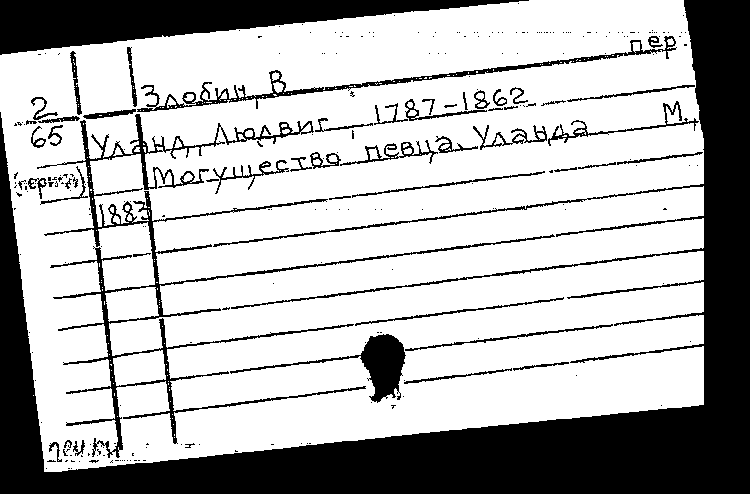 Злобин, В пер.
2
65 Уланд, Людвиг, 1787-1862
Могущество певца. Уланда М.,
(период)
1883